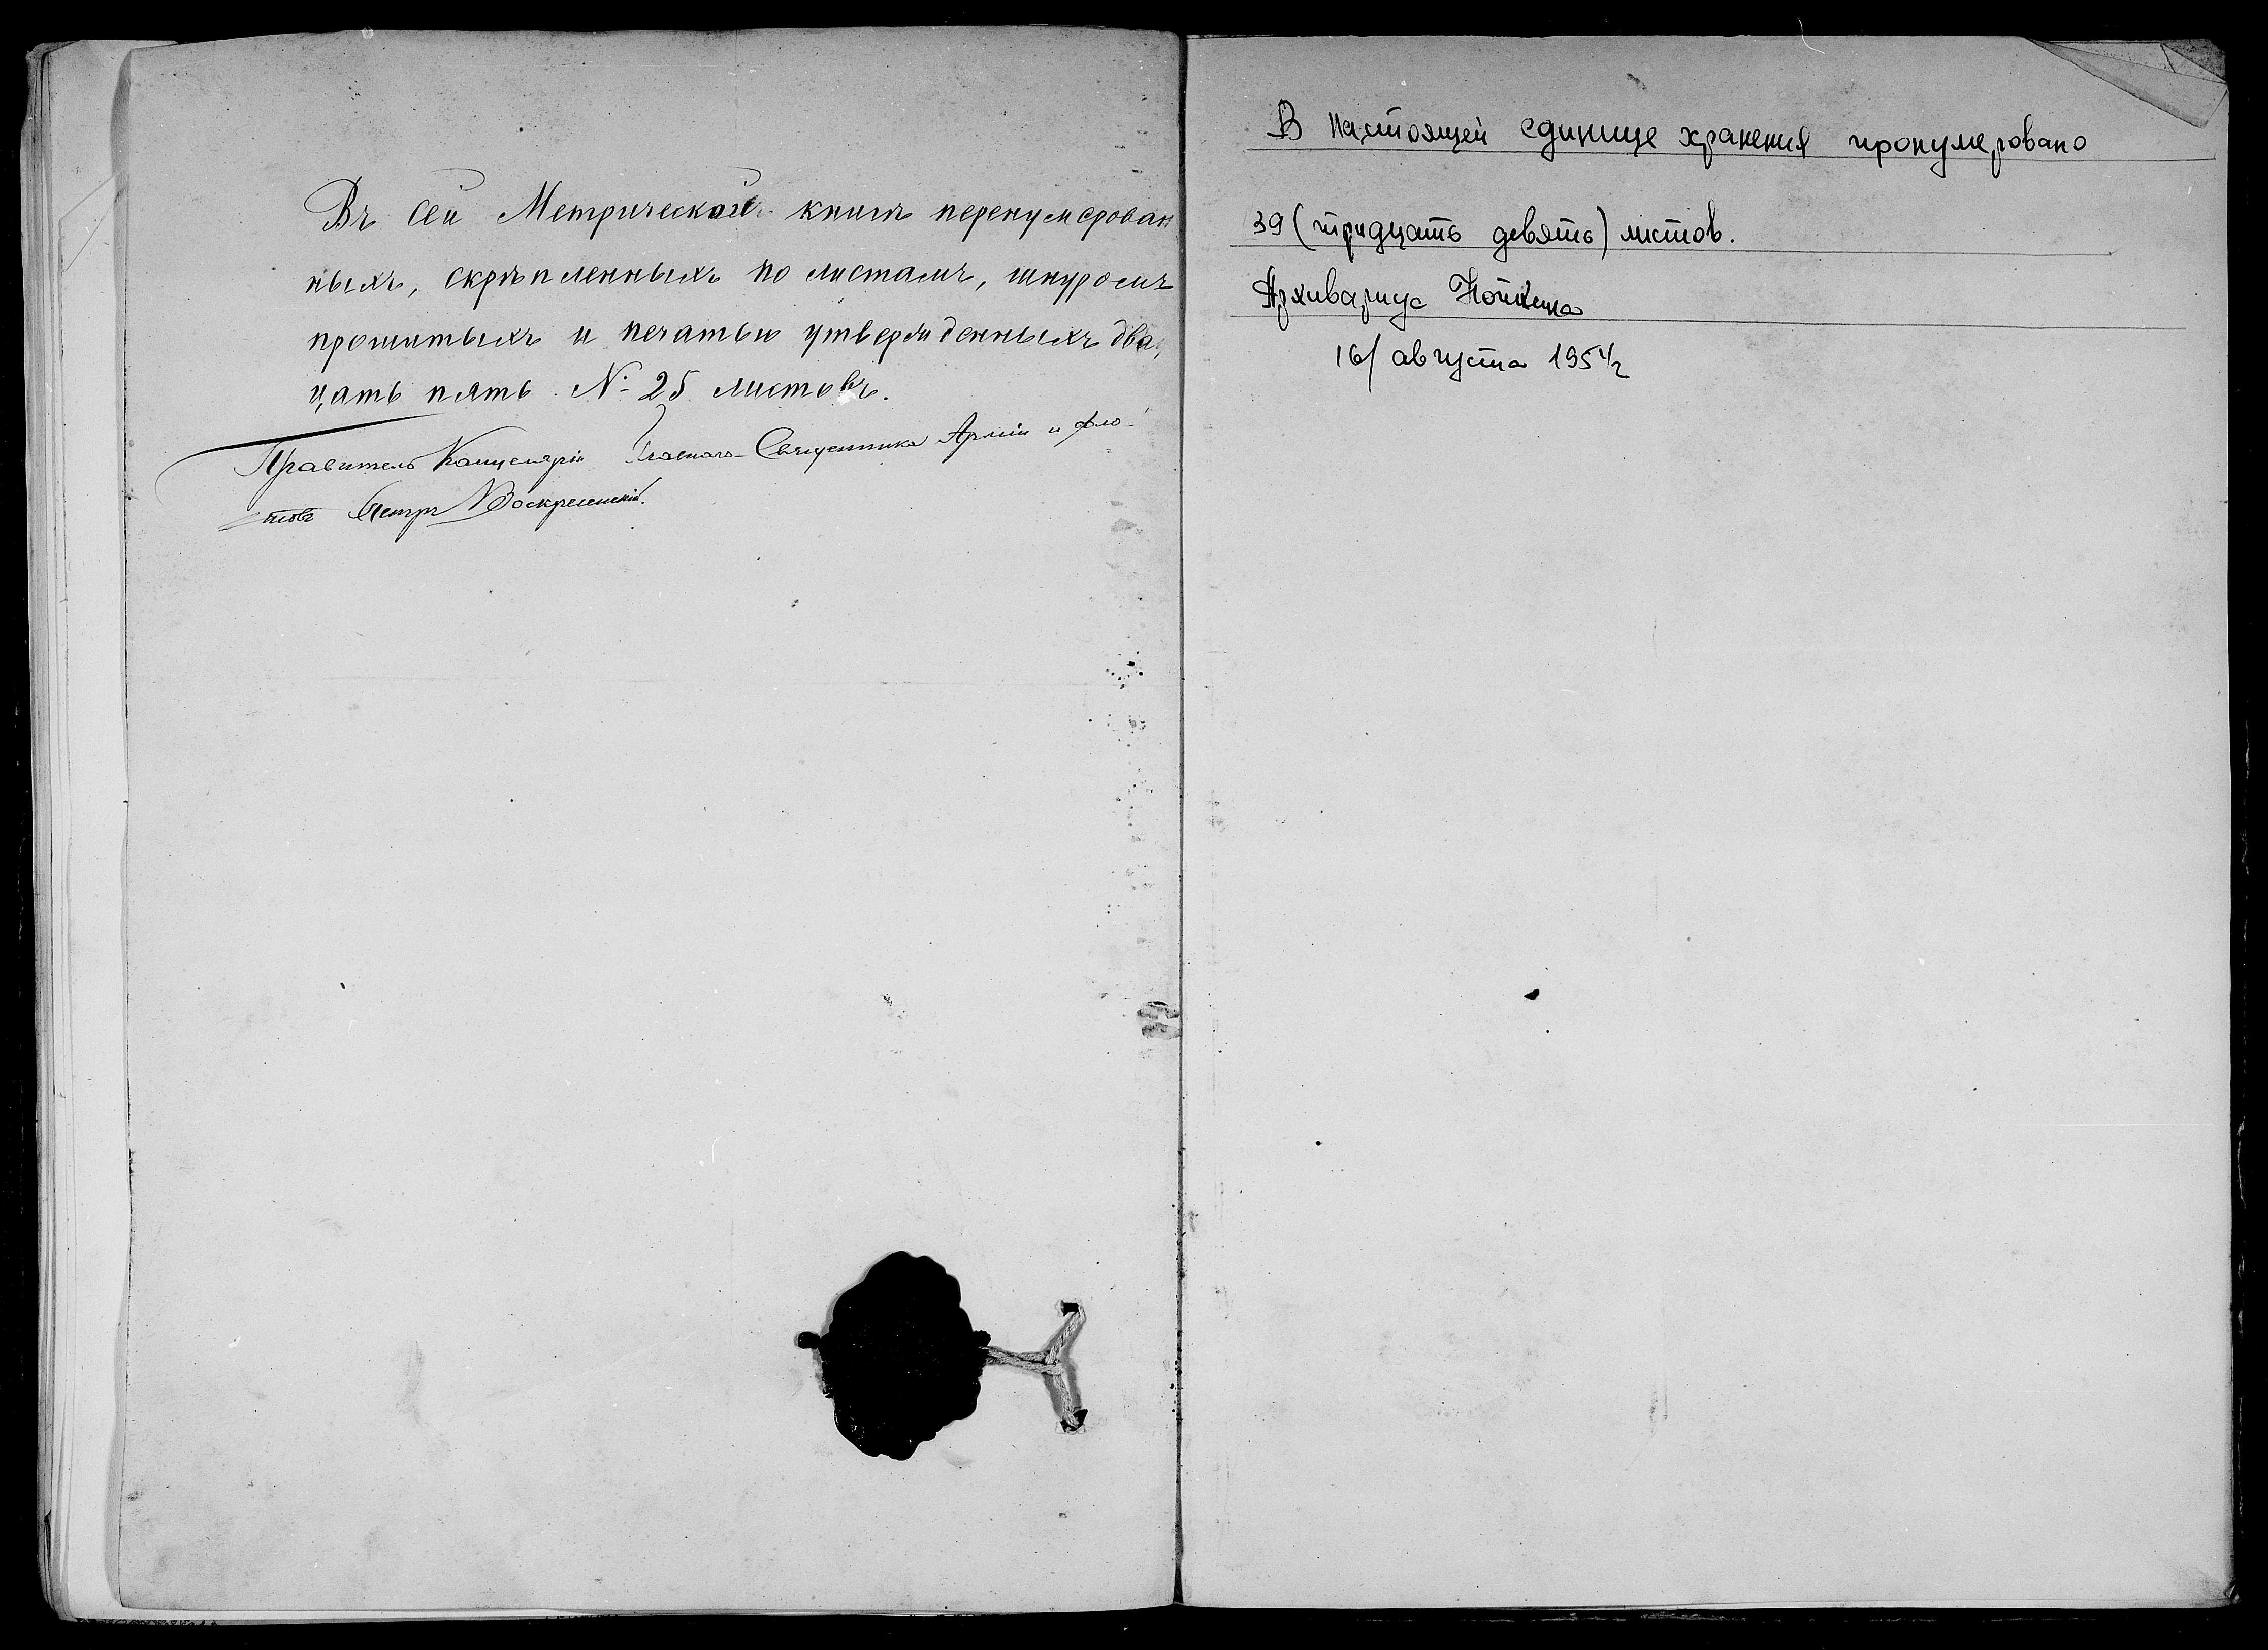 Въ сей Метрической книгѣ перенумерован
ныхъ, скрѣпленныхъ по листамъ, шнуромъ
прошитыхъ и печатью утвержденныхъ два,
цать пять № 25 листовъ.
Правитель Канцеляріи Главнаго Священника Арміи и Фло-
товъ Петръ Воскресенскій.
В настоящей единице хранения пронумеровано
39 (тридцать девять) листов.
Архивариус
16/ августа 195